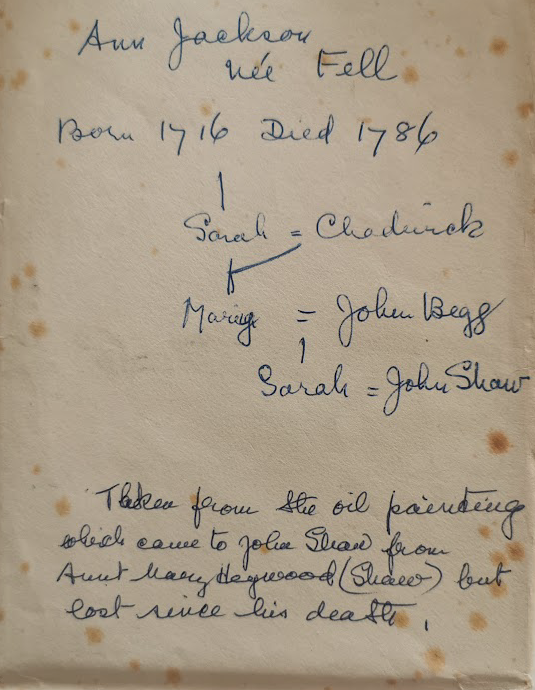 Ann Jackson
née Fell
Born 1716 Died 1786
Sarah = Chadwick
Mary = John Begg
Sarah = John Shaw
Taken from the oil painting
which came to John Shaw from
Aunt Mary Heywood (Shaw) but
lost since his death.